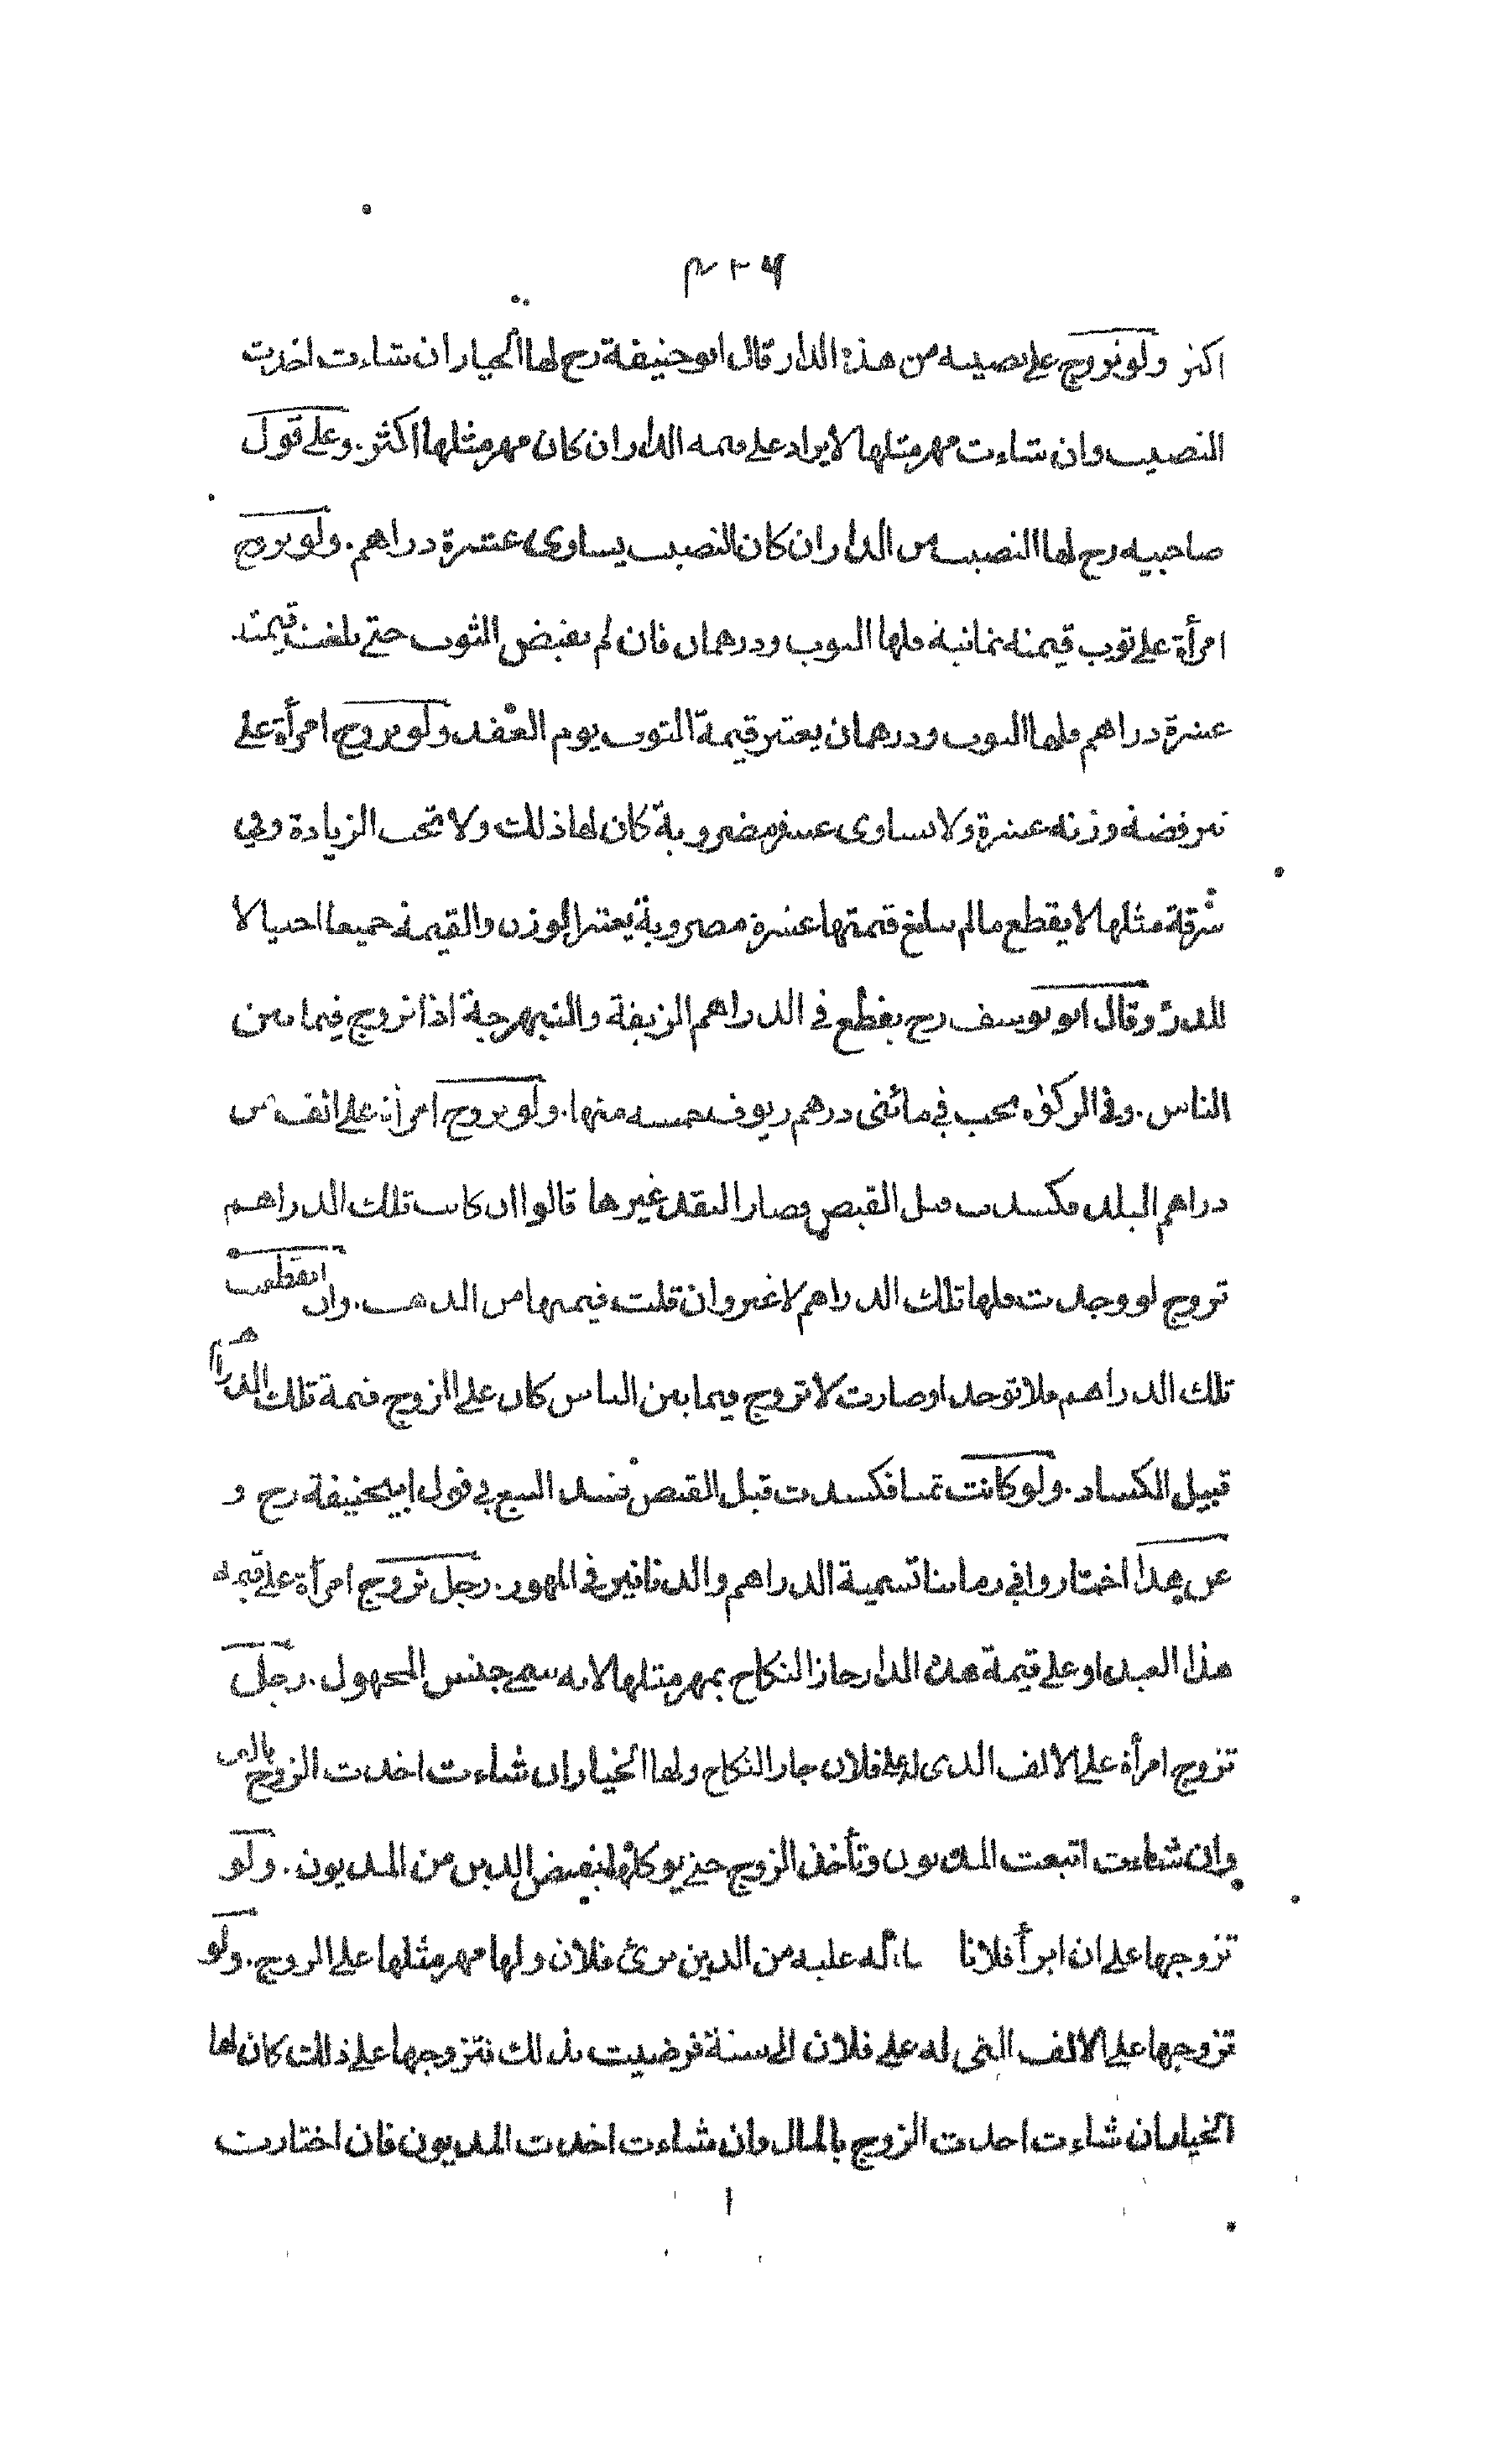 ٣٠٤
اكثر ولو تزوج على نصيبه من هذه الدار قال ابو حنيفة رح لها الخيار ان شاءت اخذت
النصيب وان شاءت مهر مثلها لا يزاد على قيمه الدار ان كان مهر مثلها اكثر. وعلى قول
صاحبيه رح لها النصيب من الدار ان كان النصيب يساوى عشرة دراهم. ولو تزوج
امرأة على ثوب قيمته ثمانية فلها الثوب ودرهمان فان لم تقبض الثوب حتى بلغت قيمته
عشرة دراهم فلها الثوب ودرهمان يعتبر قيمة الثوب يوم العقد ولو تزوج امرأة على
تبر فضة وزنه عشرة ولا يساوى عشرة مضروبة كان لها ذلك ولا تجب الزيادة وفي
سرقة مثلها لا يقطع ما لم يبلغ قيمتها عشرة مضروبة يعتبر الوزن والقيمة جميعا احتيالا
للدرء وقال ابو يوسف رح يقطع في الدراهم الزيفة والنبهرجة اذا تروج فيما بين
الناس. وفى الزكوة يجب في مائتى درهم زيوف خمسه منها. ولو تزوج امرأة على الف من
دراهم البلد فكسدت قبل القبض وصار النقد غيرها قالوا ان كانت تلك الدراهم
تروج لو وجدت فلها تلك الدراهم لا غير وان قلت قيمتها من الذهب. وان انقطعت
تلك الدراهم فلا توجد او صارت لا تروج فيما بين الناس كان على الزوج قيمة تلك الدراهم
قبيل الكساد. ولو كانت ثمنا فكسدت قبل القبض فسد البيع في قول ابيحنيفة رح و
عن هذا اختاروا في زماننا تسمية الدراهم والدنانير فى المهور. رجل تزوج امرأة على قيمة
هذا العبد او على قيمة هذه الدار جاز النكاح بمهر مثلها لانه سمى جنس المجهول. رجل
تزوج امرأة على الالف الذى له على فلان جاز النكاح ولها الخيار ان شاءت اخذت الزوج بالمهر
وان شاءت اتبعت المديون وتأخذ الزوج حتى يوكلها بقبض الدين من المديون. ولو
تزوجها على ان ابرأ فلانا مما له عليه من الدين برئ فلان ولها مهر مثلها على الزوج. ولو
تزوجها على الالف التى له على فلان الى سنة فرضيت بذلك فتزوجها على ذلك كان لها
الخيار ان شاءت اخذت الزوج بالمال وان شاءت اخذت المديون فان اختارت